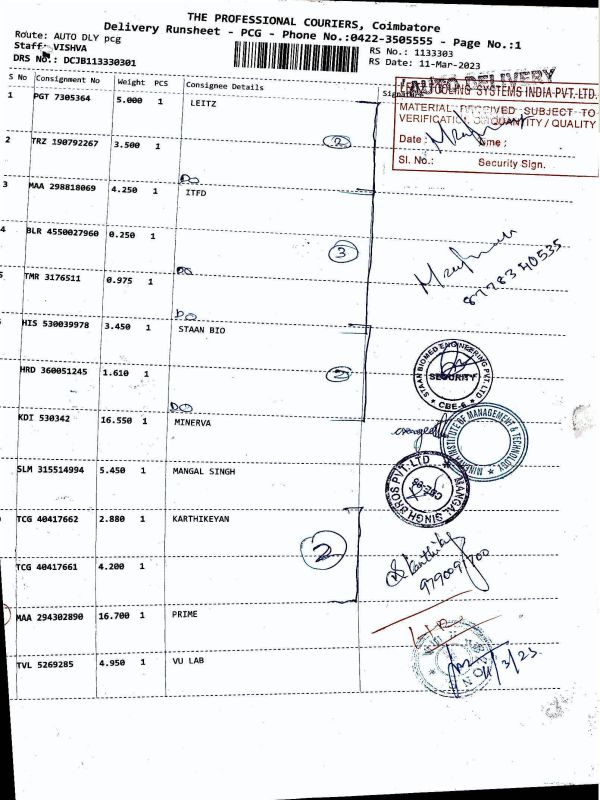 THE PROFESSIONAL COURIERS, Coimbatore
Delivery Runsheet - PCG - Phone No.:0422-3505555 - Page No.:1
Route: AUTO DLY pcg
Staff: VISHVA
DRS No.: DCJB113330301
RS No.: 1133303
RS Date: 11-Mar-2023
AUTO DELIVERY
S No Consignment No Weight PCS Consignee Details
TOOLING SYSTEMS INDIA PVT.LTD.
MATERIAL RECEIVED SUBJECT TO
VERIFICATION QUANTITY / QUALITY
Date : Time :
Sl. No.: Security Sign.
1 PGT 7305364 5.000 1 LEITZ
2 TRZ 190792267 3.500 1 DO
2
3 MAA 298818069 4.250 1 ITFD
4 BLR 4550027960 0.250 1 DO
3
87783 40535
TMR 3176511 0.975 1 DO
HIS 530039978 3.450 1 STAAN BIO
HRD 360051245 1.610 1 DO
2
STAAN BIOMED ENGINEERING PVT.LTD
SECURITY
CBE-6
KDI 530342 16.550 1 MINERVA
INSTITUTE OF MANAGEMENT & TECHNOLOGY
SLM 315514994 5.450 1 MANGAL SINGH
MANGAL SINGH BROS PVT.LTD
TCG 40417662 2.880 1 KARTHIKEYAN
2
TCG 40417661 4.200 1
Karthik
MAA 294302890 16.700 1 PRIME
TVL 5269285 4.950 1 VU LAB
11/3/23